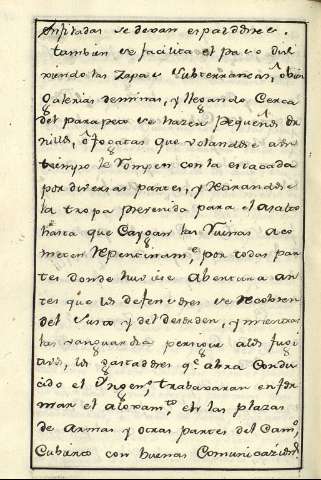 Anfiladas se devan espaldones.
tambien se facilita el paso diri
viendo las Zapas Subterraneas, ô bien
Galerias de minas, y llegando Cerca
del parapeto se hazen pequeños Or
nillos, ô fogatas que volandose a un
tiempo le rompen con la estacada
por diversas partes, y Retirandose
la tropa prevenida para el Asalto
hasta que Caygan las Ruinas Aco
meten Repentinamte por todas par
tes donde huviese Abertura an
tes que los defensores se Recobren
del Susto y del desorden, y mientras
las vanguardia persigue a los fugi
tivos, los gastadores qe abra Condu
cido el Yngeno trabaxaran en for
mar el aloxamto en las plazas
de Armas y otras partes del Camo
Cubierto con buenas Comunicaziones